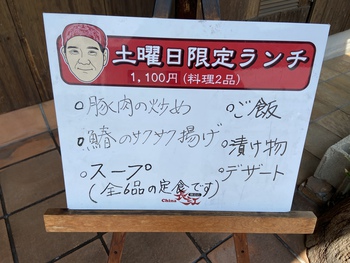 土曜日限定ランチ
1,100円(料理2品)
○豚肉の炒め ○ご飯
○鰆のサクサク揚げ ○漬け物
○スープ ○デザート
(全6品の定食です)
China